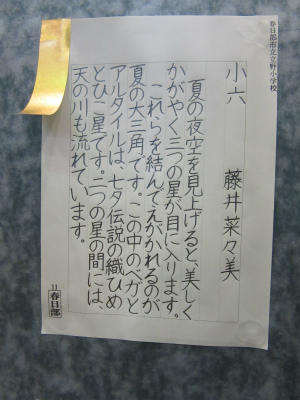 春日部市立立野小学校
小六 藤井菜々美
夏の夜空を見上げると、美しく
かがやく三つの星が目に入ります。
これらを結んでえがかれるのが
夏の大三角です。この中のベガと
アルタイルは、七夕伝説の織りひめ
とひこ星です。二つの星の間には、
天の川も流れています。
11 春日部